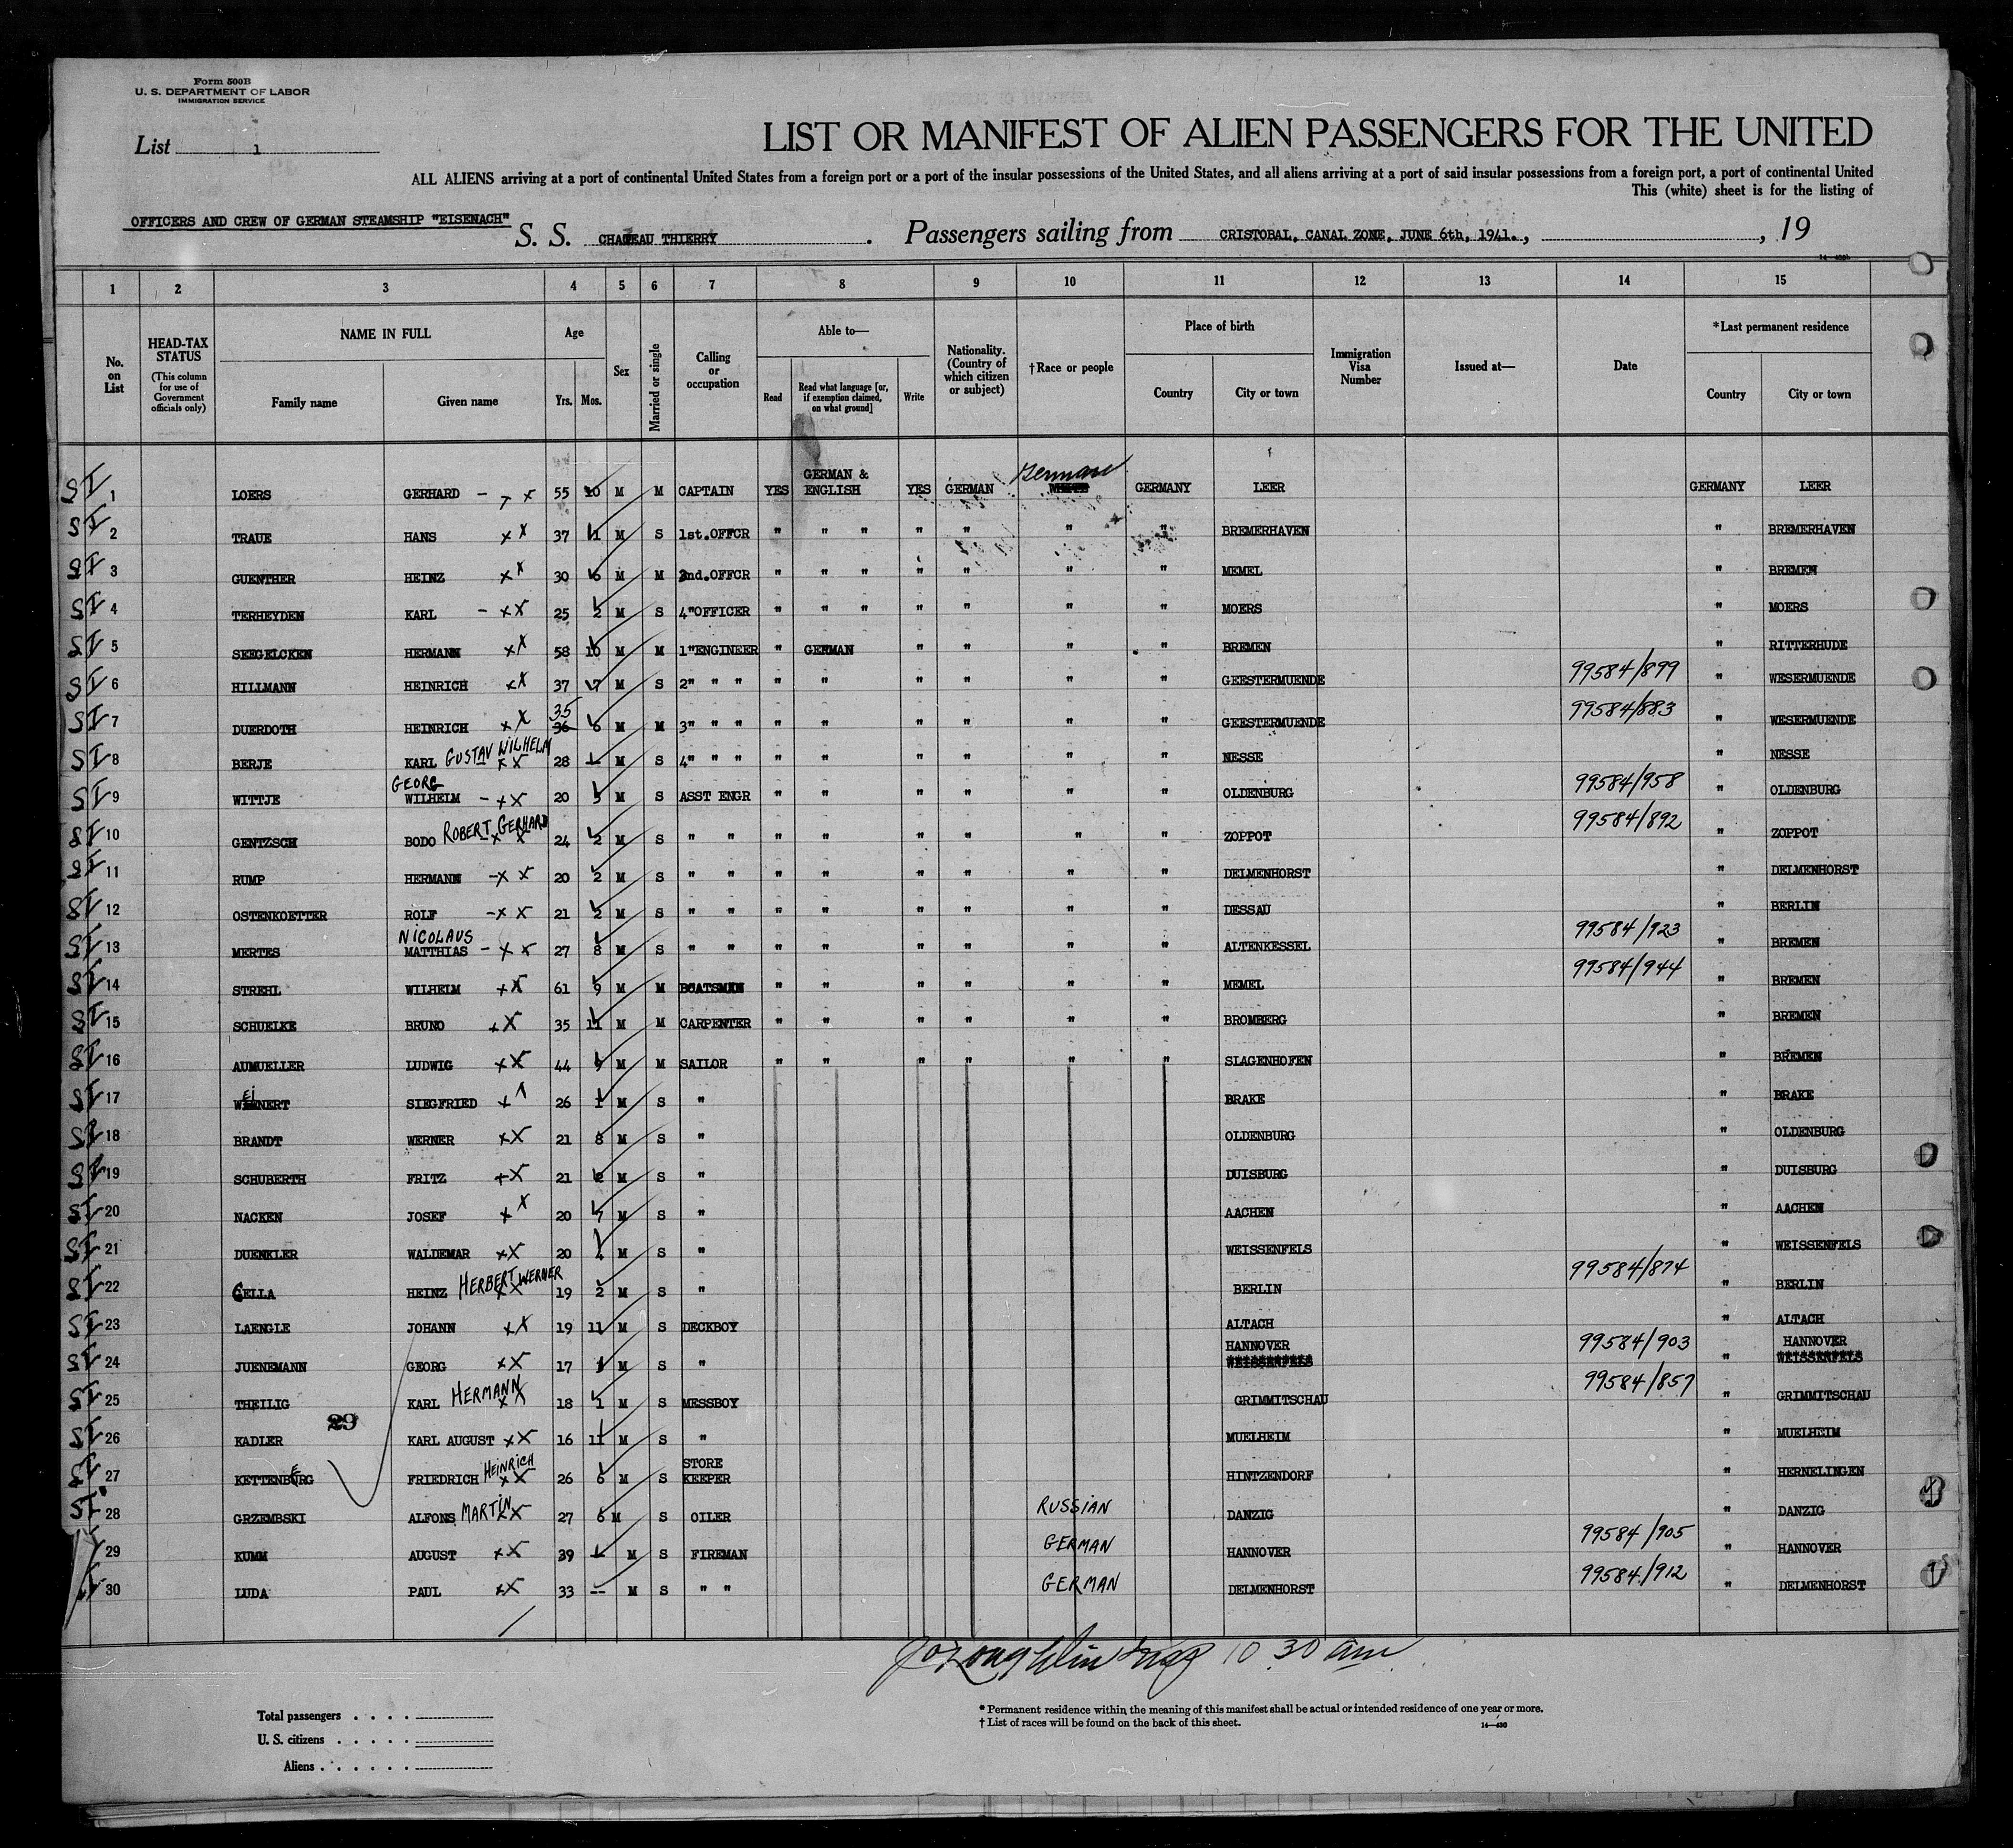 Form 500B
U. S. DEPARTMENT OF LABOR
IMMIGRATION SERVICE
List 1
LIST OR MANIFEST OF ALIEN PASSENGERS FOR THE UNITED
ALL ALIENS arriving at a port of continental United States from a foreign port or a port of the insular possessions of the United States, and all aliens arriving at a port of said insular possessions from a foreign port, a port of continental United
This (white) sheet is for the listing of
OFFICERS AND CREW OF GERMAN STEAMSHIP "EISENACH"
S. S. CHATEAU THIERRY. Passengers sailing from CRISTOBAL, CANAL ZONE, JUNE 6th, 1941., , 19
1 2 3 4 5 6 7 8 9 10 11 12 13 14 15
No. on List
HEAD-TAX STATUS (This column for use of Government officials only)
NAME IN FULL
Family name
Given name
Age
Yrs. Mos.
Sex
Married or single
Calling or occupation
Able to—
Read
Read what language [or, if exemption claimed, on what ground]
Write
Nationality. (Country of which citizen or subject)
†Race or people
Place of birth
Country
City or town
Immigration Visa Number
Issued at—
Date
*Last permanent residence
Country
City or town
SI 1 LOERS GERHARD - x x 55 10 M M CAPTAIN YES GERMAN & ENGLISH YES GERMAN German GERMANY LEER GERMANY LEER
SI 2 TRAUE HANS x x 37 11 M S 1st.OFFCR " " " " " " " BREMERHAVEN " BREMERHAVEN
SI 3 GUENTHER HEINZ x x 30 6 M M 2nd.OFFCR " " " " " " " MEMEL " BREMEN
SI 4 TERHEYDEN KARL - x x 25 2 M S 4"OFFICER " " " " " " " MOERS " MOERS
SI 5 SEEGELCKEN HERMANN x x 58 10 M M 1"ENGINEER " GERMAN " " " " BREMEN " RITTERHUDE
SI 6 HILLMANN HEINRICH x x 37 7 M S 2" " " " " " " " " GEESTERMUENDE 99584/899 " WESERMUENDE
SI 7 DUERDOTH HEINRICH x x 35 36 6 M M 3" " " " " " " " " GEESTERMUENDE 99584/883 " WESERMUENDE
SI 8 BERJE KARL GUSTAV WILHELM x x 28 M S 4" " " " " " " " " NESSE " NESSE
SI 9 WITTJE GEORG WILHELM - x x 20 5 M S ASST ENGR " " " " " " OLDENBURG 99584/958 " OLDENBURG
SI 10 GENTZSCH BODO ROBERT GERHARD x x 24 2 M S " " " " " " " " ZOPPOT 99584/892 " ZOPPOT
SI 11 RUMP HERMANN - x x 20 2 M S " " " " " " " " DELMENHORST " DELMENHORST
SI 12 OSTENKOETTER ROLF - x x 21 2 M S " " " " " " " " DESSAU " BERLIN
SI 13 MERTES NICOLAUS MATTHIAS - x x 27 8 M S " " " " " " " " ALTENKESSEL 99584/923 " BREMEN
SI 14 STREHL WILHELM x x 61 9 M M BOATSMAN " " " " " " MEMEL 99584/944 " BREMEN
SI 15 SCHUELKE BRUNO x x 35 11 M M CARPENTER " " " " " " BROMBERG " BREMEN
SI 16 AUMUELLER LUDWIG x x 44 9 M M SAILOR " " " " " " SLAGENHOFEN " BREMEN
SI 17 WEINERT SIEGFRIED x x 26 1 M S " BRAKE " BRAKE
SI 18 BRANDT WERNER x x 21 8 M S " OLDENBURG " OLDENBURG
SI 19 SCHUBERTH FRITZ x x 21 2 M S " DUISBURG " DUISBURG
SI 20 NACKEN JOSEF x x 20 7 M S " AACHEN " AACHEN
SI 21 DUENKLER WALDEMAR x x 20 4 M S " WEISSENFELS " WEISSENFELS
SI 22 CELLA HEINZ HERBERT WERNER x x 19 2 M S " BERLIN 99584/874 " BERLIN
SI 23 LAENGLE JOHANN x x 19 11 M S DECKBOY ALTACH " ALTACH
SI 24 JUENEMANN GEORG x x 17 1 M S " HANNOVER WEISSENFELS 99584/903 " HANNOVER WEISSENFELS
SI 25 THEILIG KARL HERMANN x x 18 1 M S MESSBOY GRIMMITSCHAU 99584/857 " GRIMMITSCHAU
29
SI 26 KADLER KARL AUGUST x x 16 11 M S " MUELHEIM " MUELHEIM
SI 27 KETTENBERG FRIEDRICH HEINRICH x x 26 6 M S STORE KEEPER HINTZENDORF " HERNELINGEN
SI 28 GRZEMBSKI ALFONS MARTIN x x 27 6 M S OILER RUSSIAN DANZIG " DANZIG
29 KUMM AUGUST x x 39 M S FIREMAN GERMAN HANNOVER 99584/905 " HANNOVER
30 LUDA PAUL x x 33 -- M S " " GERMAN DELMENHORST 99584/912 " DELMENHORST
10 30 am
Total passengers . . . .
U. S. citizens . . . . .
Aliens . . . . . .
* Permanent residence within the meaning of this manifest shall be actual or intended residence of one year or more.
† List of races will be found on the back of this sheet.
14—430